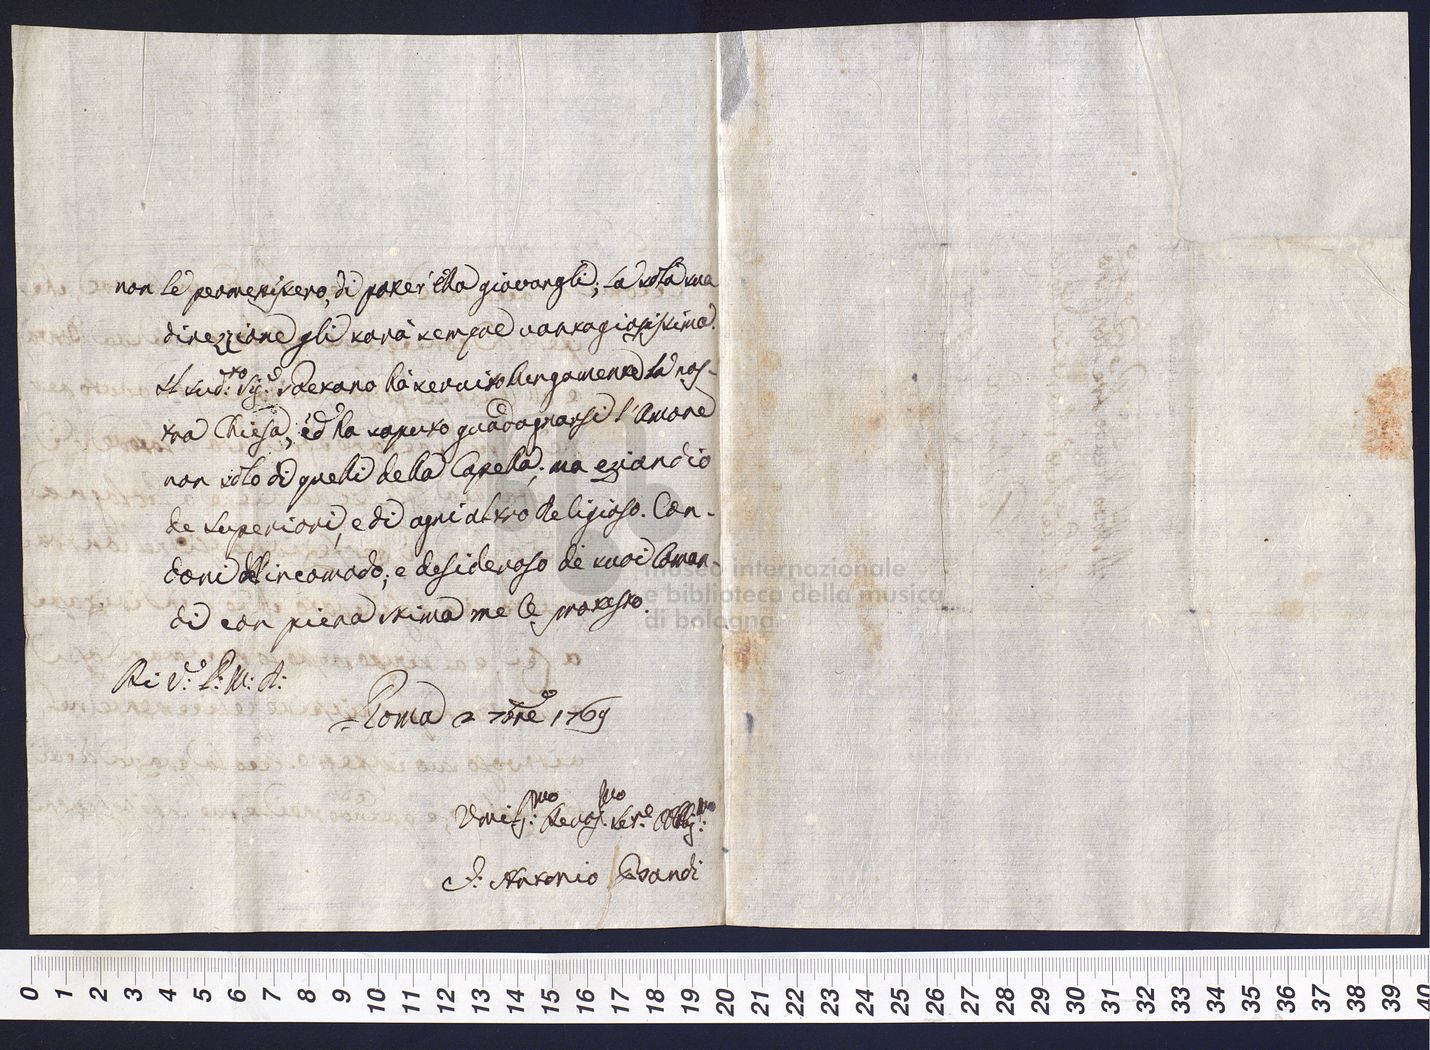 non le permettissero, di poter'ella giovargli; la sola sua
direzzione gli sarà sempre vantagiosissima.
Il sud.to Sig.e Soprano hà servito lungamente la nos-
tra Chiesa, ed ha saputo guadagnarsi l'Amore
non solo di quelli della Capella; ma eziandio
de Superiori, e di ogni altro Religioso. Con-
doni dell'incomodo; e desideroso de suoi Coman-
di con piena stima me le protesto.
Di V: P: M: R:
Roma 2 7bre 1769
Umil:mo Devot:mo Ser:e Obblig:mo
F: Antonio
museo internazionale
e biblioteca della musica
di bologna
0 1 2 3 4 5 6 7 8 9 10 11 12 13 14 15 16 17 18 19 20 21 22 23 24 25 26 27 28 29 30 31 32 33 34 35 36 37 38 39 40